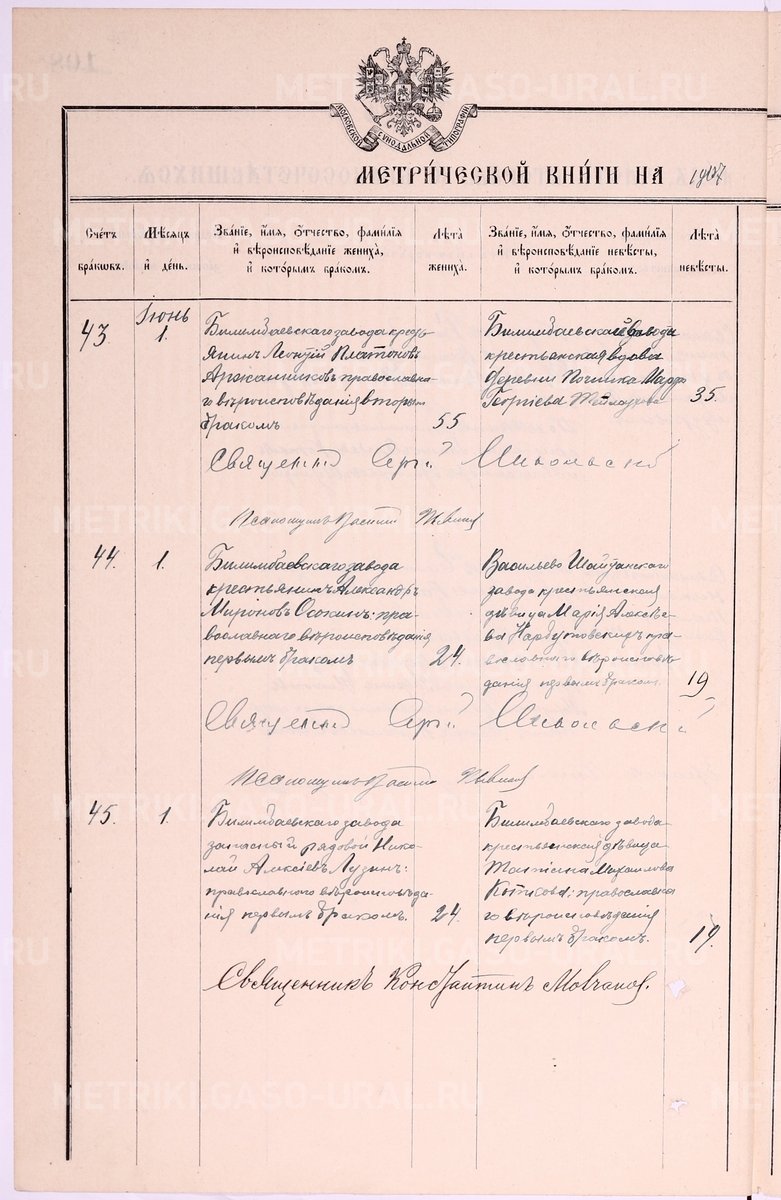 МОСКОВСКОЙ СѴНОДАЛЬНОЙ ТИПОГРАФІИ
МЕТРИ́ЧЕСКОЙ КНИ́ГИ НА
Счéтъ бра́кѡвъ.
Мѣ́сяцъ и҆ де́нь.
Зва́нїе, и҆́мѧ, ѻ҆́тчество, фами́лїѧ
и҆ вѣроисповѣ́данїе жениха̀,
и҆ кото́рымъ бра́комъ.
Лѣ́та жениха̀.
Зва́нїе, и҆́мѧ, ѻ҆́тчество, фами́лїѧ
и҆ вѣроисповѣ́данїе невѣ́сты,
и҆ кото́рымъ бра́комъ.
Лѣ́та невѣ́сты.
Іюнь
43.
1.
Билимбаевскаго завода кресть
янинъ Леонтій Платоновъ
православна
го вѣроисповѣданія вторымъ
бракомъ
55
Билимбаевскаго завода
крестьянская вдова
деревни Починка Марѳа
Георгіева
35.
Священникъ Сергій Никольскій
Псаломщикъ Василій
44.
1.
Билимбаевскаго завода
крестьянинъ Александръ
Мироновъ Осокинъ: пра-
вославнаго вѣроисповѣданія
первымъ бракомъ
24.
Васильево Шайтанскаго
завода крестьянская
дѣвица Марія Алексѣе-
ва Нарбутовскихъ пра-
вославнаго вѣроисповѣ
данія первымъ бракомъ
19
Священникъ Сергій Никольскій
Псаломщикъ Василій
45.
1.
Билимбаевскаго завода
запасный рядовой Нико-
лай Алексіевъ Лузинъ:
православнаго вѣроисповѣда
нія первымъ бракомъ.
24.
Билимбаевскаго завода
крестьянская дѣвица
Татіана Михаилова
православна
го вѣроисповѣданія
первымъ бракомъ.
19.
Священникъ Константинъ Молчановъ.
METRIKI.GASO-URAL.RU